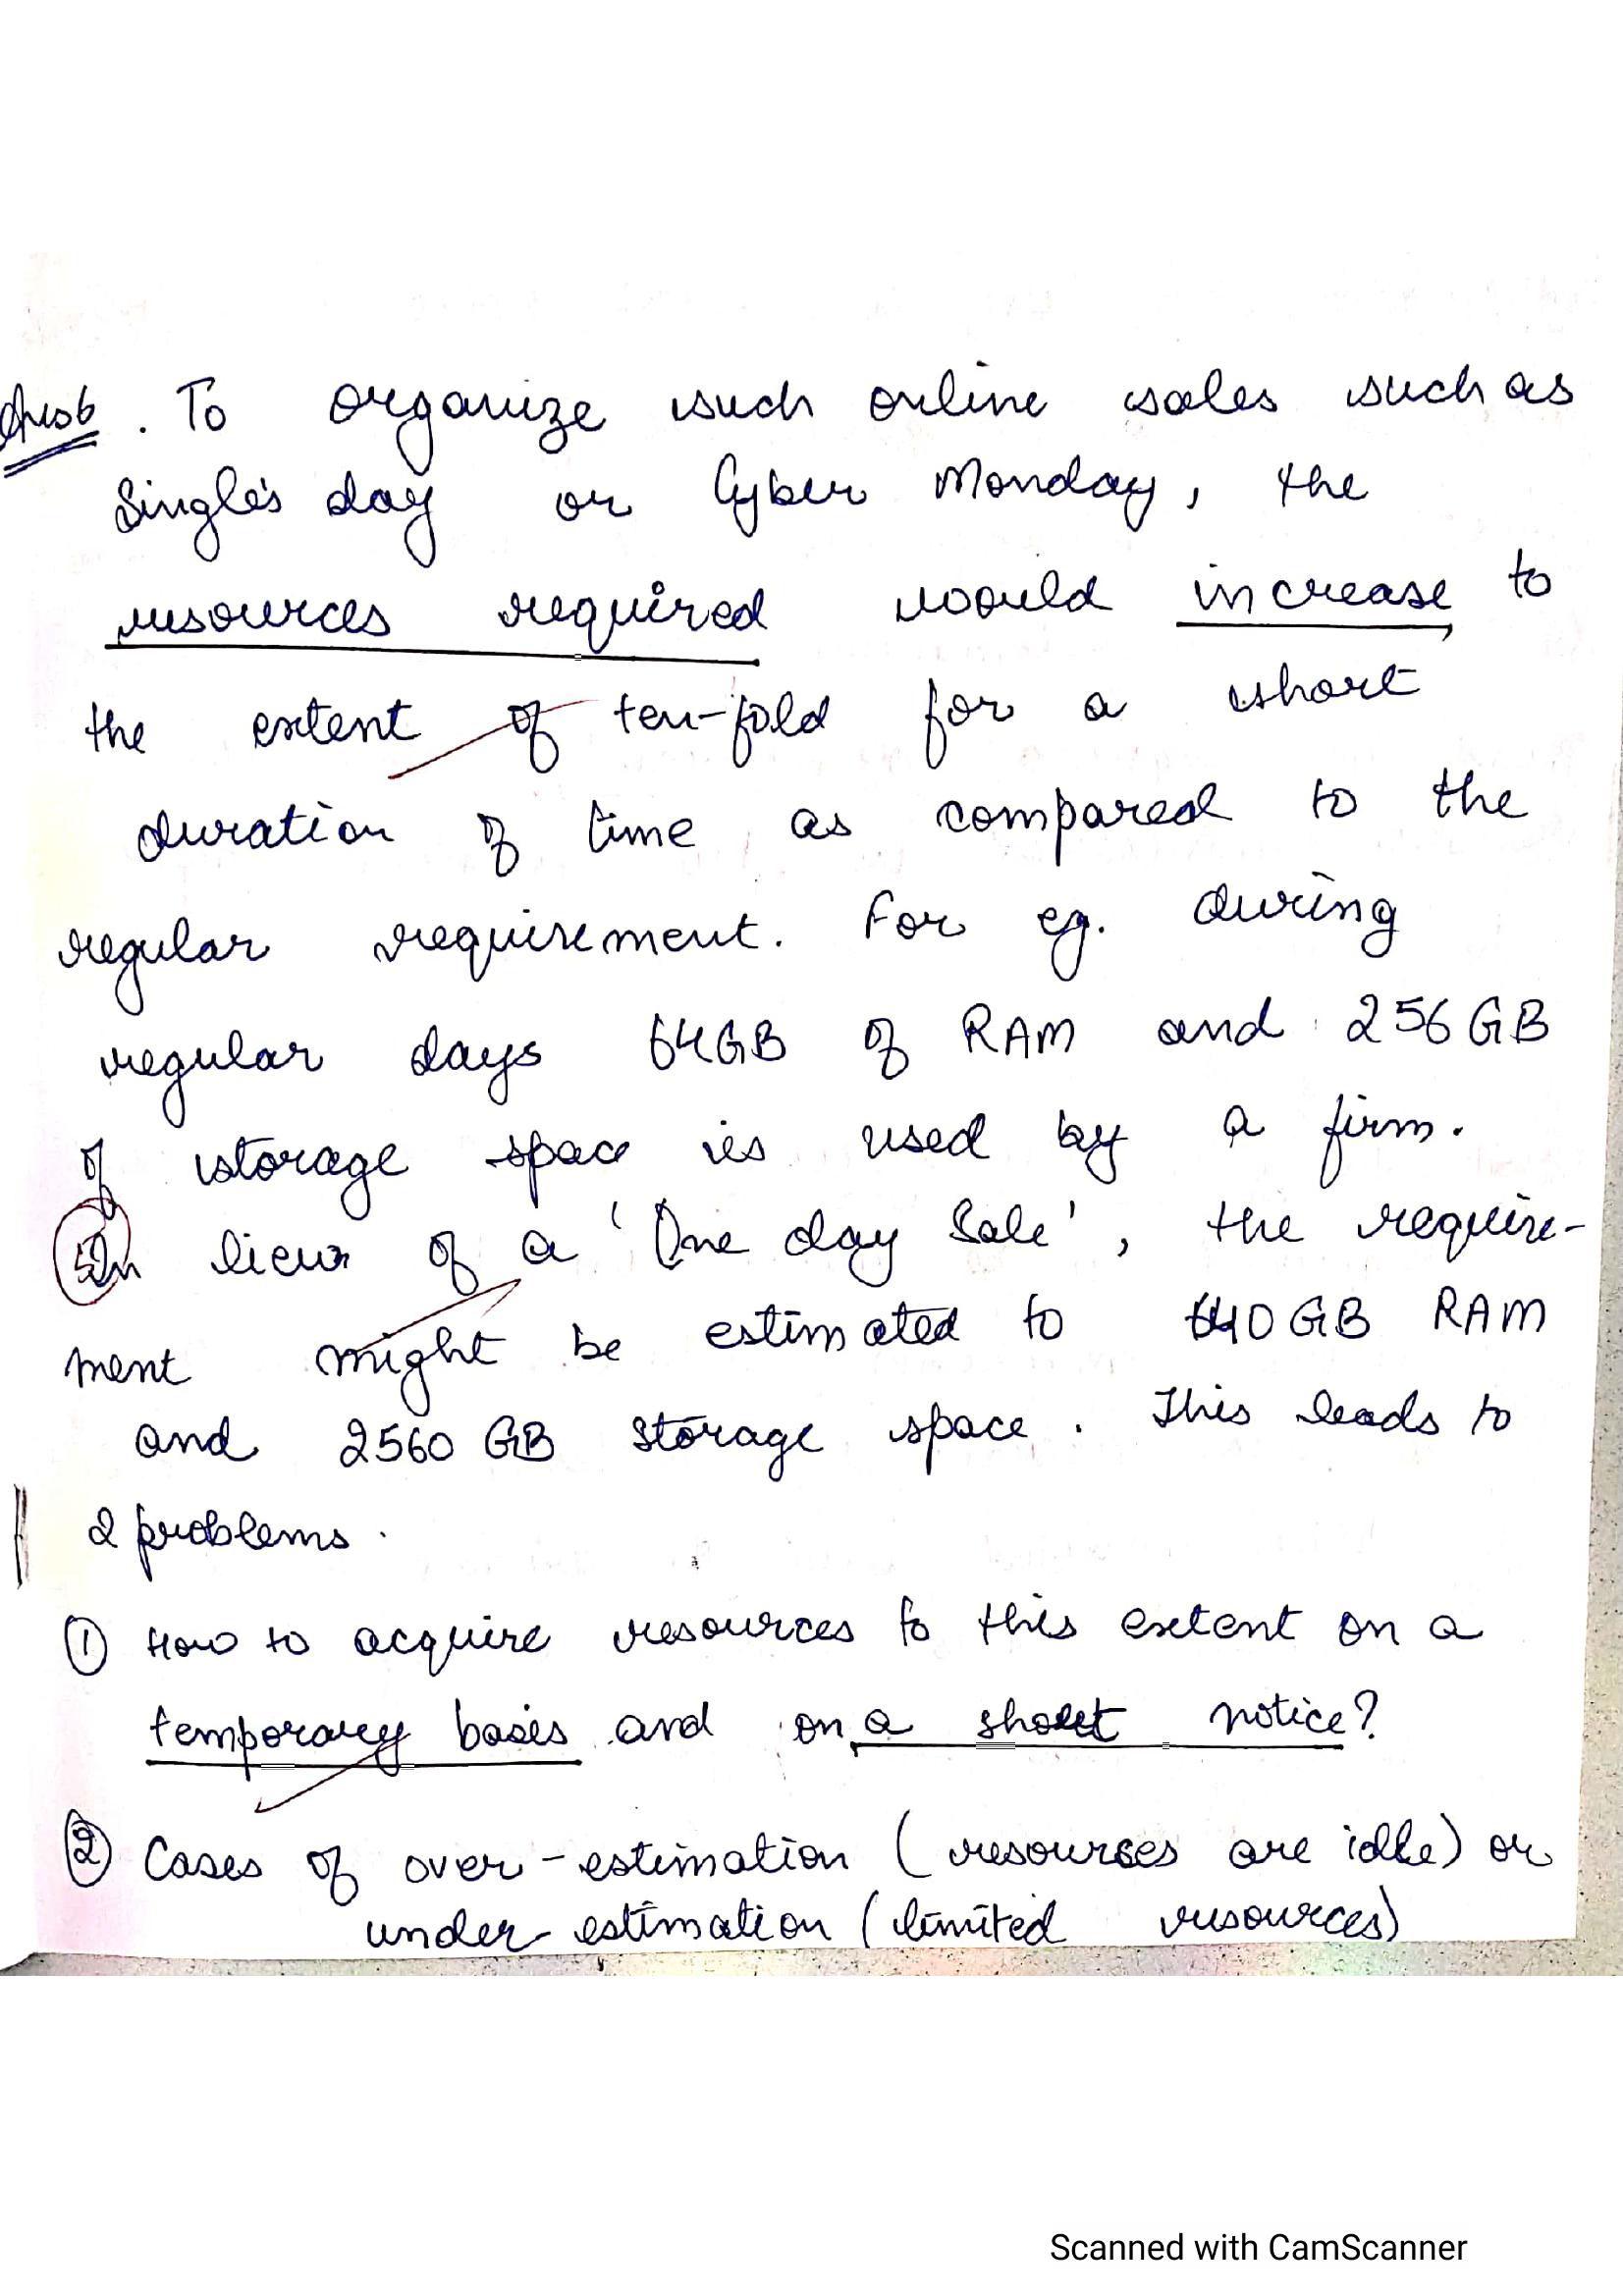 Ans 6. To organize such online sales such as
Single's day or Cyber Monday, the
resources required would increase to
the extent of ten-fold for a short
duration of time as compared to the
regular requirement. For eg. during
regular days 64GB of RAM and 256 GB
of storage space is used by a firm.
In lieu of a 'One day Sale', the require-
ment might be estimated to 640 GB RAM
and 2560 GB storage space. This leads to
2 problems.
① How to acquire resources to this extent on a
temporary basis and on a short notice?
② Cases of over-estimation (resources are idle) or
under-estimation (limited resources)
Scanned with CamScanner